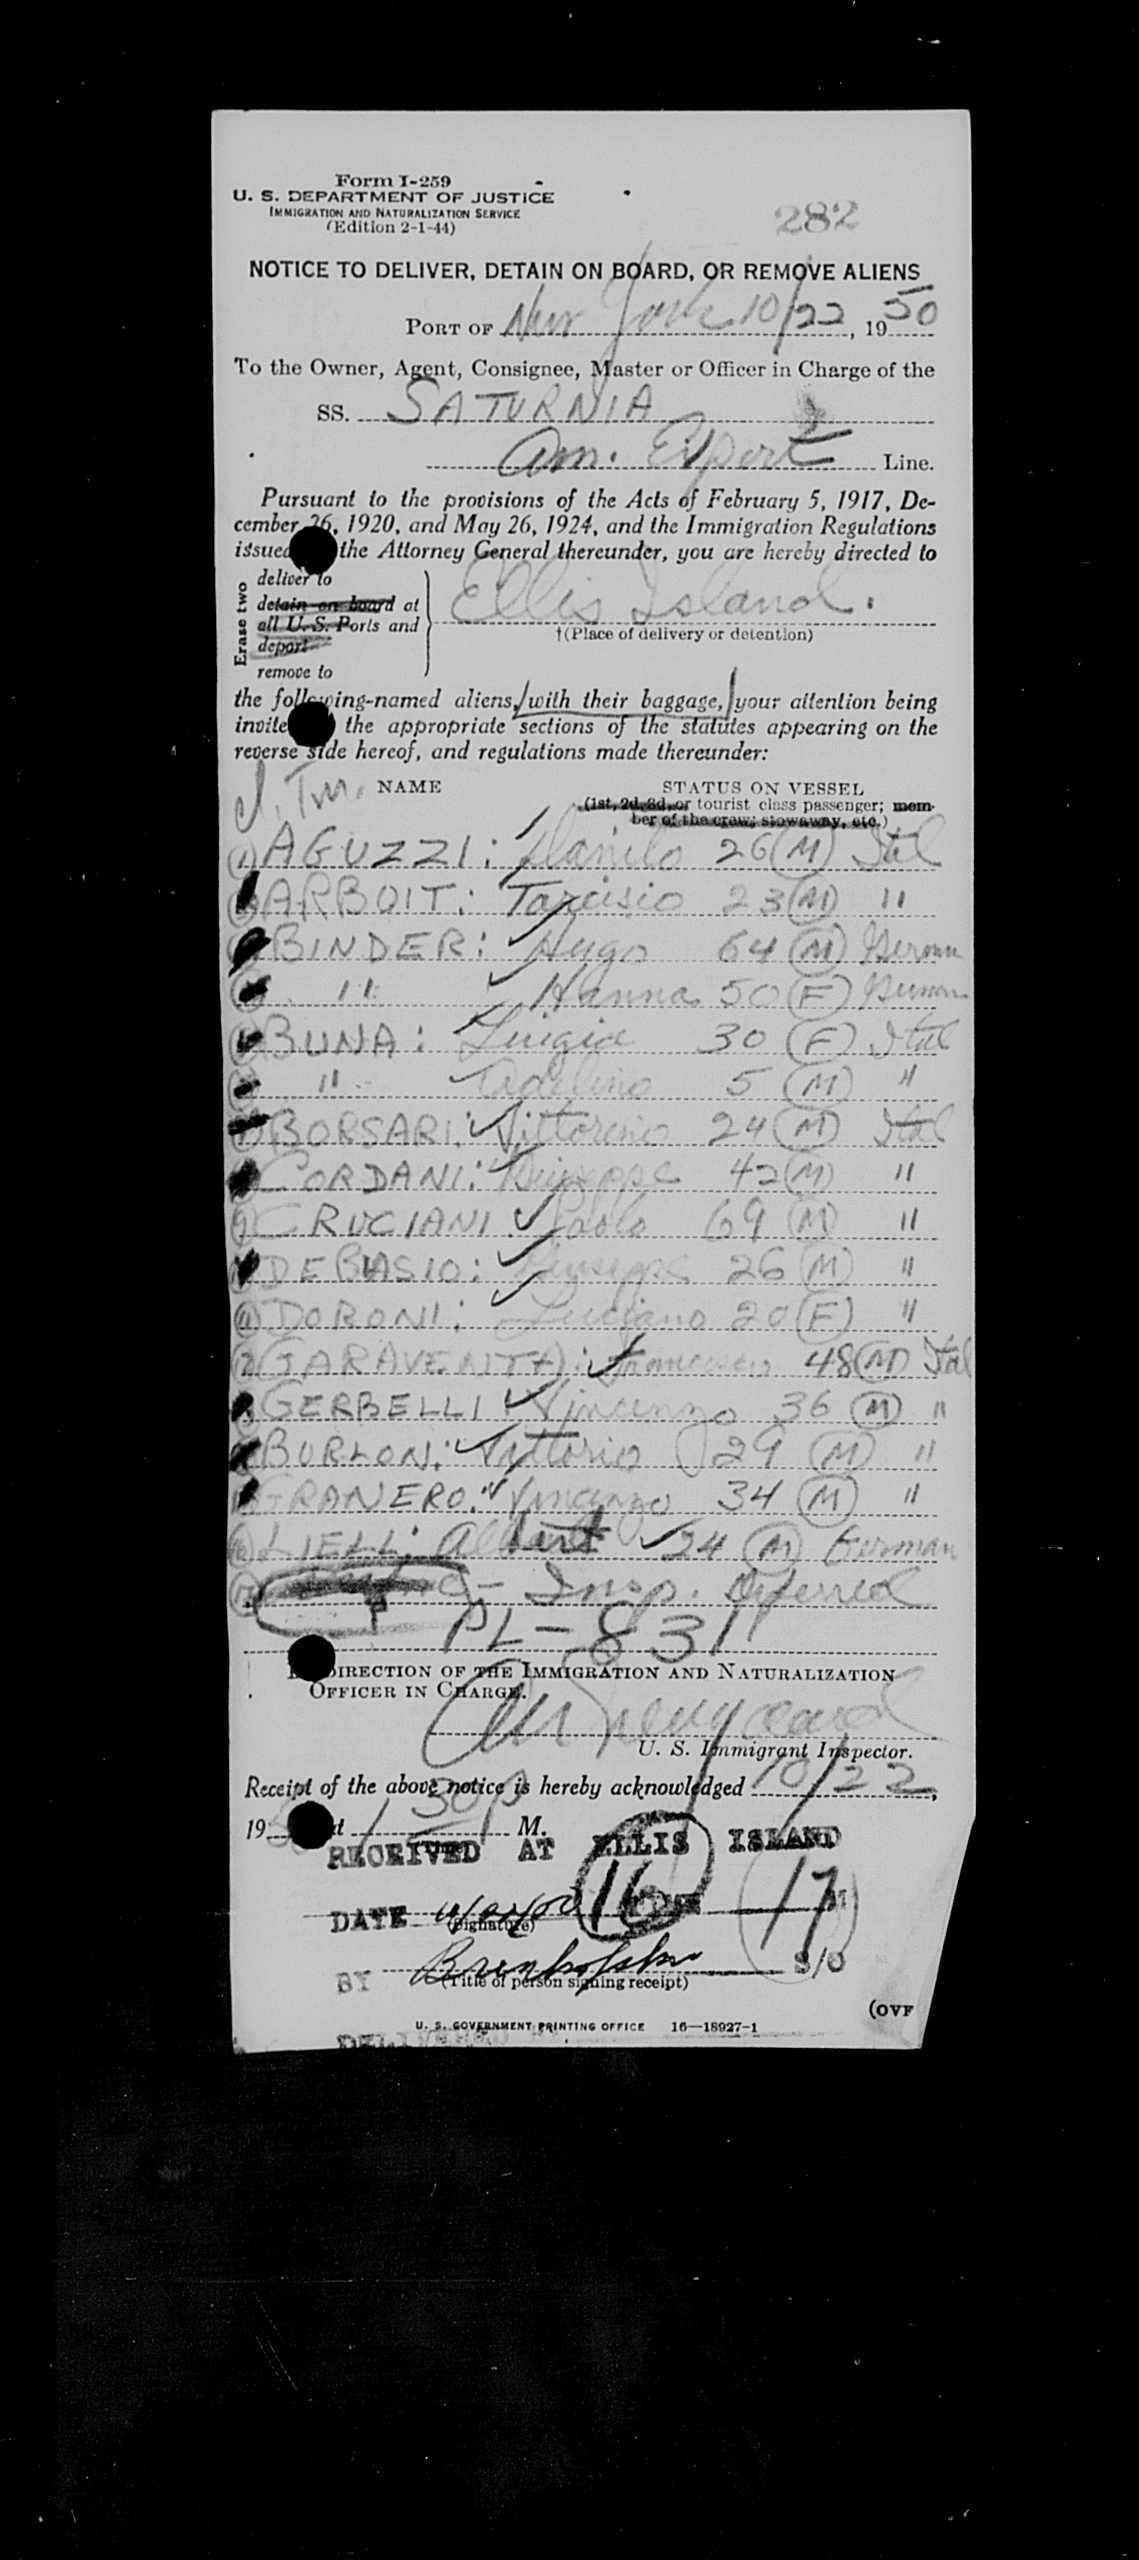 Form I-259
U. S. DEPARTMENT OF JUSTICE
IMMIGRATION AND NATURALIZATION SERVICE
(Edition 2-1-44)
282
NOTICE TO DELIVER, DETAIN ON BOARD, OR REMOVE ALIENS
PORT OF New York 10/22, 1950
To the Owner, Agent, Consignee, Master or Officer in Charge of the
SS. SATURNIA
2
Am. Export Line.
Pursuant to the provisions of the Acts of February 5, 1917, De-
cember 26, 1920, and May 26, 1924, and the Immigration Regulations
issued the Attorney General thereunder, you are hereby directed to
Erase two
deliver to
detain on board at
all U. S. Ports and
depart
remove to
Ellis Island.
†(Place of delivery or detention)
the following-named aliens, with their baggage, your attention being
invite the appropriate sections of the statutes appearing on the
reverse side hereof, and regulations made thereunder:
NAME STATUS ON VESSEL
(1st, 2d, 3d, or tourist class passenger; mem-
ber of the crew; stowaway, etc.)
1 AGUZZI: Danilo 26 (M) Ital
ARBOIT: Tarcisio 23 (M) "
BINDER: Hugo 64 (M) German
" Hanna 50 (F) German
BUNA: Luigia 30 (F) Ital
" 5 (M) "
BORSARI: Vittorino 24 (M) Ital
CORDANI: Giuseppe 42 (M) "
9 CRUCIANI: Paolo 69 (M) "
DEBIASIO: Giuseppe 26 (M) "
11 DORONI: Luciano 20 (F) "
12 GARAVENTA: Francesco 48 (M) Ital
GERBELLI Vincenzo 36 (M) "
BURLON: Vittorio 29 (M) "
GRANERO: Vincenzo 34 (M) "
16 LIELL: Albert 24 (M) German
17 - Insp. Deferred
PL-831
DIRECTION OF THE IMMIGRATION AND NATURALIZATION
OFFICER IN CHARGE.
U. S. Immigrant Inspector.
Receipt of the above notice is hereby acknowledged 10/22,
19 at 1 30 P M.
RECEIVED AT ELLIS ISLAND
DATE 16 17 M
(Signature)
BY S/O
(Title of person signing receipt)
(OVE
U. S. GOVERNMENT PRINTING OFFICE 16—18927-1